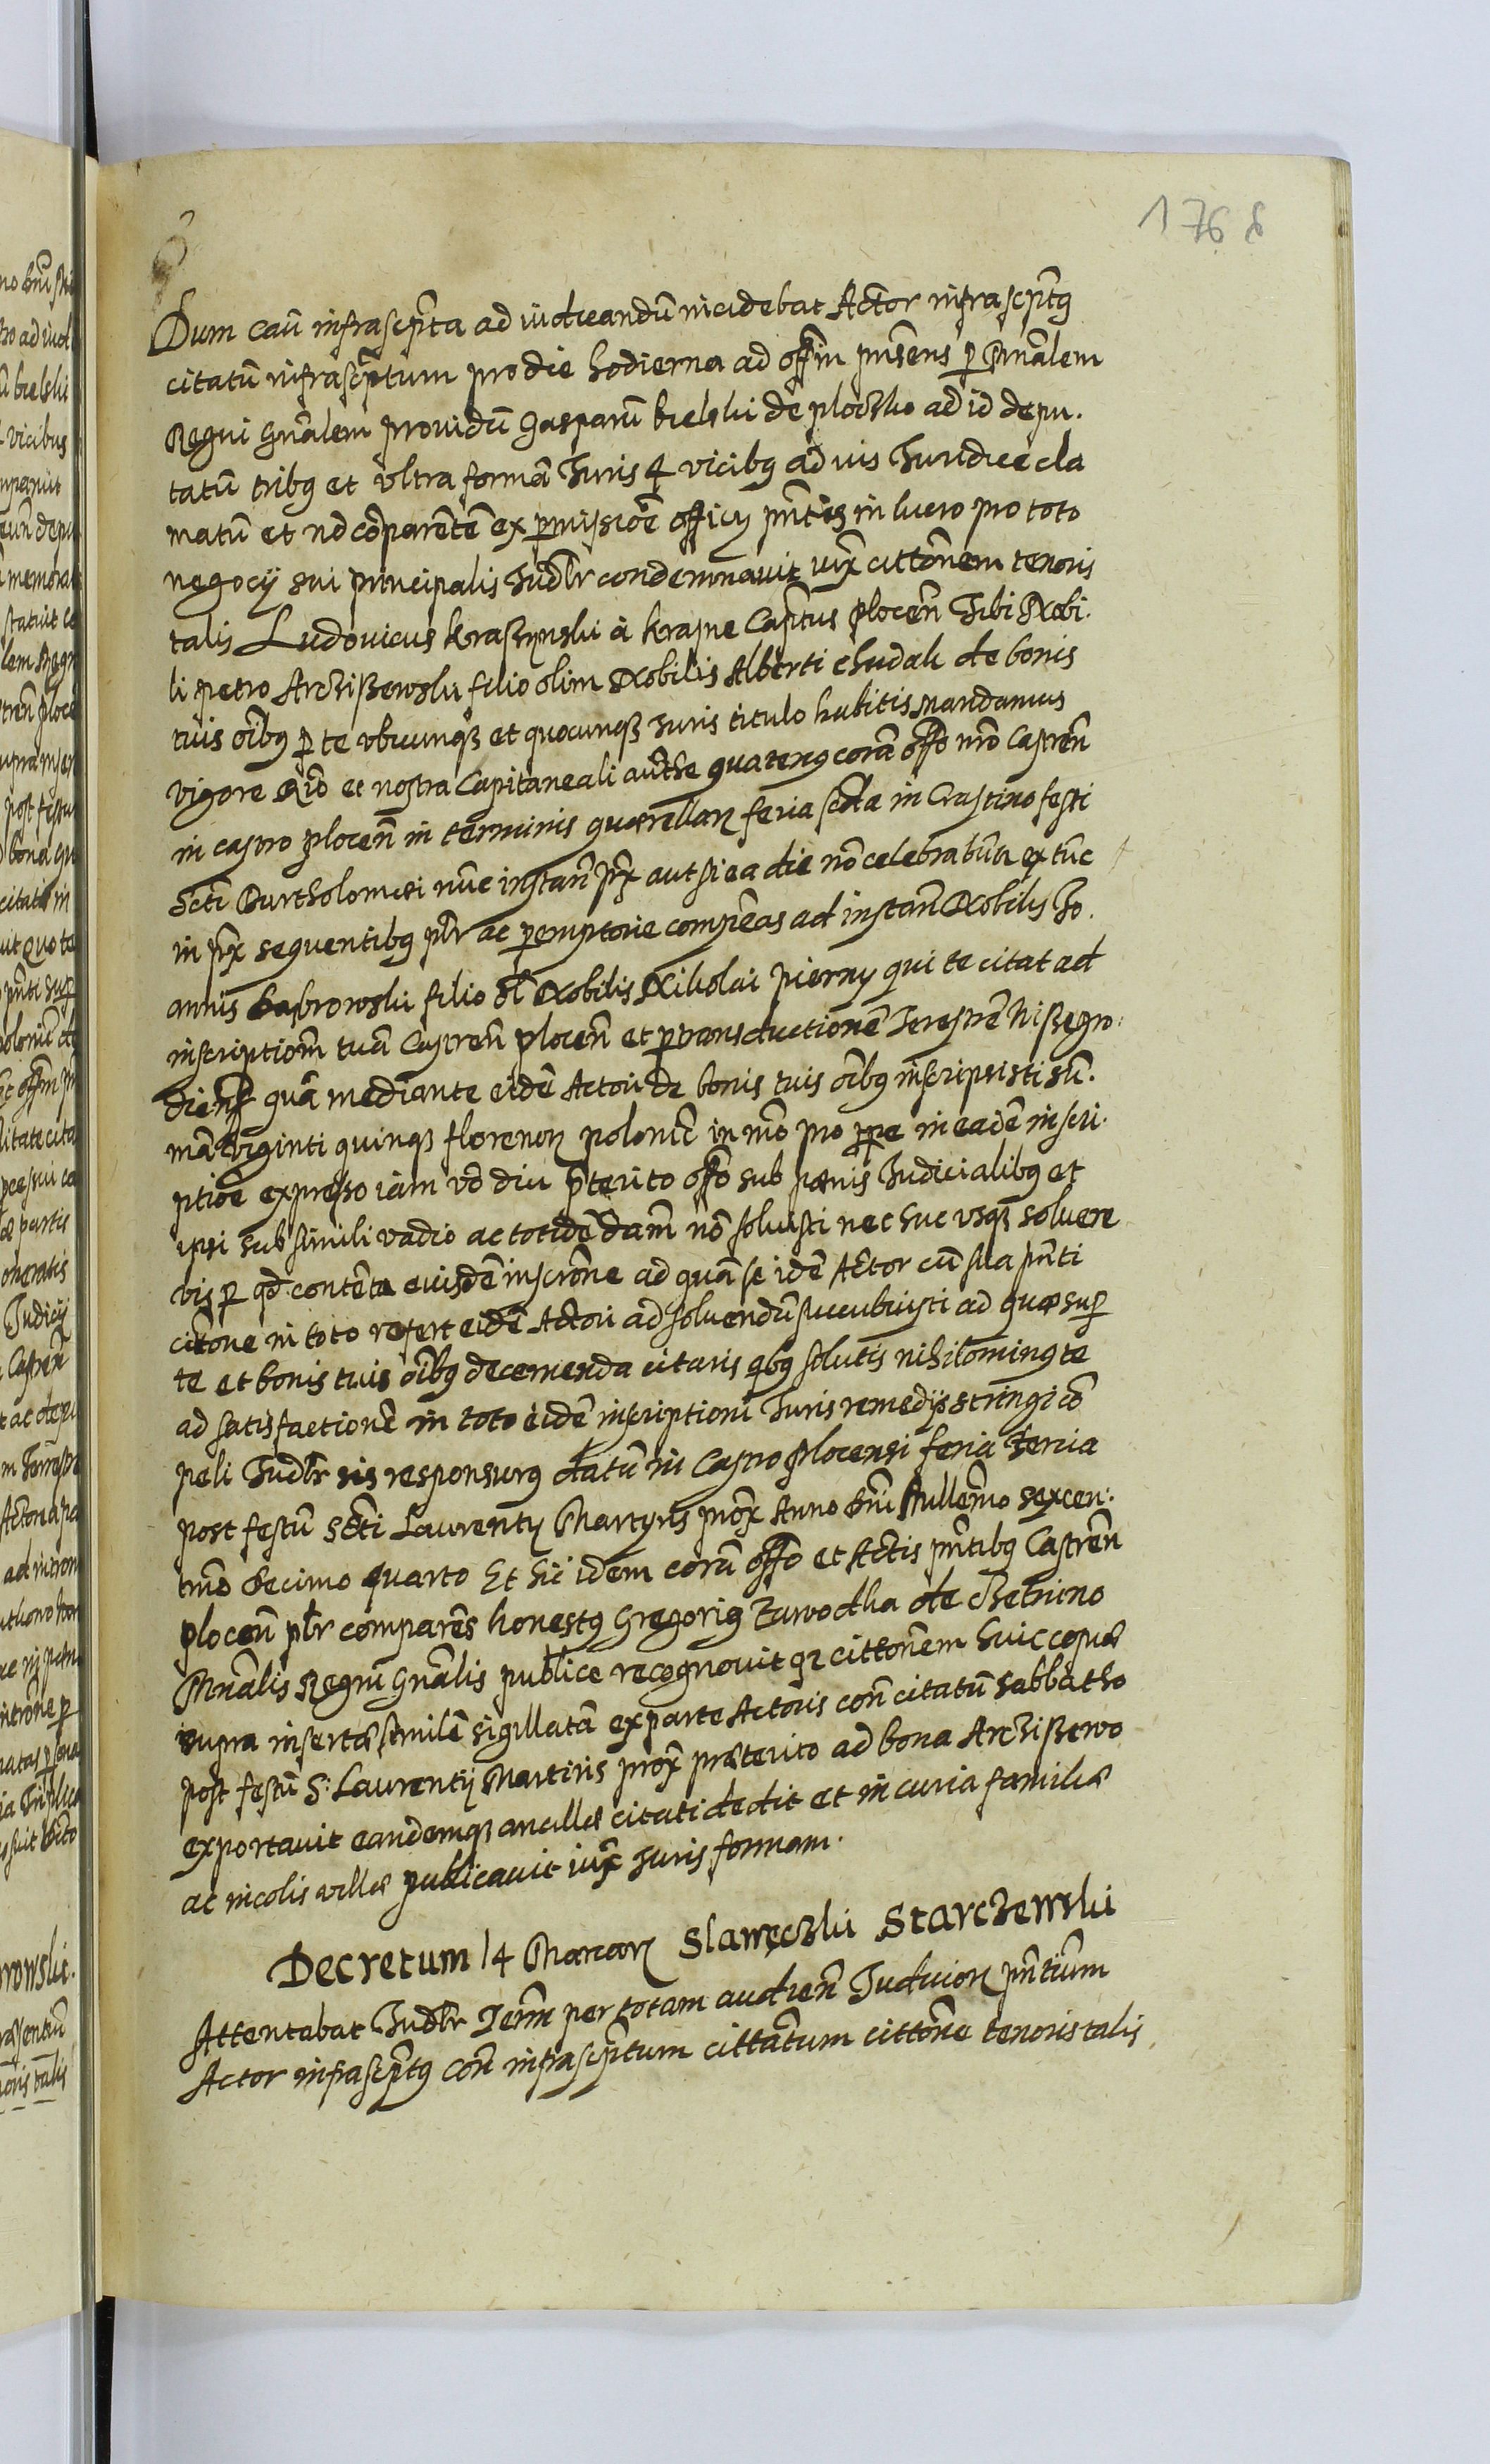 176 8
Dum cau͂ infrascp̃ta ad iudicandũ incidebat Actor infrascptꝰ
citatũ infrascp̃tum pro die hodierna ad offm̃ pn̄sens ꝑ Mnãlem
Regni Gnãlem prouidũ Gasparũ bielski de plocżko ad id depu.
tatũ tribꝰ et vltra formã Juris 4 vicibꝰ ad uis Juridice cla
matũ et nõ cõparẽtẽ ex ꝑmissiõe officij pñtis in lucro pro toto
negocij sui principalis Judlr̃ condemnauit iux̃ cittõnem tenoris
talis Ludovicus kraszynski à krasne Captũs plocen̄ Tibi Nobi.
li petro Arcżißewski filio olim Nobilis Alberti chudak de bonis
tuis oĩbꝰ ꝑ te vbicunqꝫ et quocunqꝫ Juris titulo habitis mandamus
vigore Rio et nostra Capitaneali authe quatenꝰ corã offo nr̃o Castren̄
in castro plocen̄ in terminis quærellarꝫ feria scda in Crastino festi
Scti Bartholomei nũc instan̄ prx̃ aut si ea die nõ celebrabũtr ex tũc
in prx̃ sequentibꝰ plr̃ ac ꝑemptorie compẽas ad instan̄ Nobilis Jo.
annis babrowski filio ol̃ Nobilis Nikolai pierny qui te citat ad
inscriptionm̃ tuã Castren̄ plocen̄ et ꝑ transductionẽ Terestrẽ Wißegro:
dien̄ quã mediante eidẽ Actori de bonis tuis oĩbꝰ inscripsisti sũ.
mã viginti quinqꝫ florenorꝫ polonic̃ in mõ pro ꝑpe in eadẽ inscri.
ptioe expresso iam võ diu p̃terito offo sub pænis Judicialibꝰ et
ipsi sub simili vadio ac totidẽ dam̃ nõ soluisti nec huc vsqꝫ soluere
vis ꝑ qd contẽta eiusdẽ inscrõne ad quã se idẽ Actor cũ sua pñti
citõne in toto refert eidẽ Actori ad soluendũ succubuisti ad quæ suꝑ
te et bonis tuis oĩbꝰ decernenda citaris qibꝰ solutis nihilominꝰ te
ad satisfactionẽ in toto eidẽ inscriptioni Juris remedijs stringi cõ
peli Judlr̃ sis responsurꝰ datũ in Castro plocensi feria tercia
post festũ Scti Laurentij Martyris prox̃ Anno dni Millemo sexcen:
tmo decimo quarto Et hic idem corã offo et Actis pñtibꝰ Castren̄
plocen̄ plr̃ comparẽs honestꝰ Gregoriꝰ Zawodka de Betrino
Mnãlis Regni Gnãlis publice recognouit qꝫ cittõnem huic copiæ
supra insertæ similẽ sigillatã ex parte Actoris con̄ citatũ sabbatho
post festũ S: Laurentij Martiris prox̃ præterito ad bona Arcżißewo
exportauit eandemqꝫ ancillæ citati dedit et in curia familiæ
ac incolis villæ publicauit iux̃ Juris formam.
Decretum 14 Marcarꝫ Slawęcżki Starcżewski
Attentabat Judlr̃ Term̃ per totam audien̄ Judiciorꝫ pñtium
Actor infrascp̃tꝰ con̄ infrascp̃tum cittãtum cittõne tenoris talis